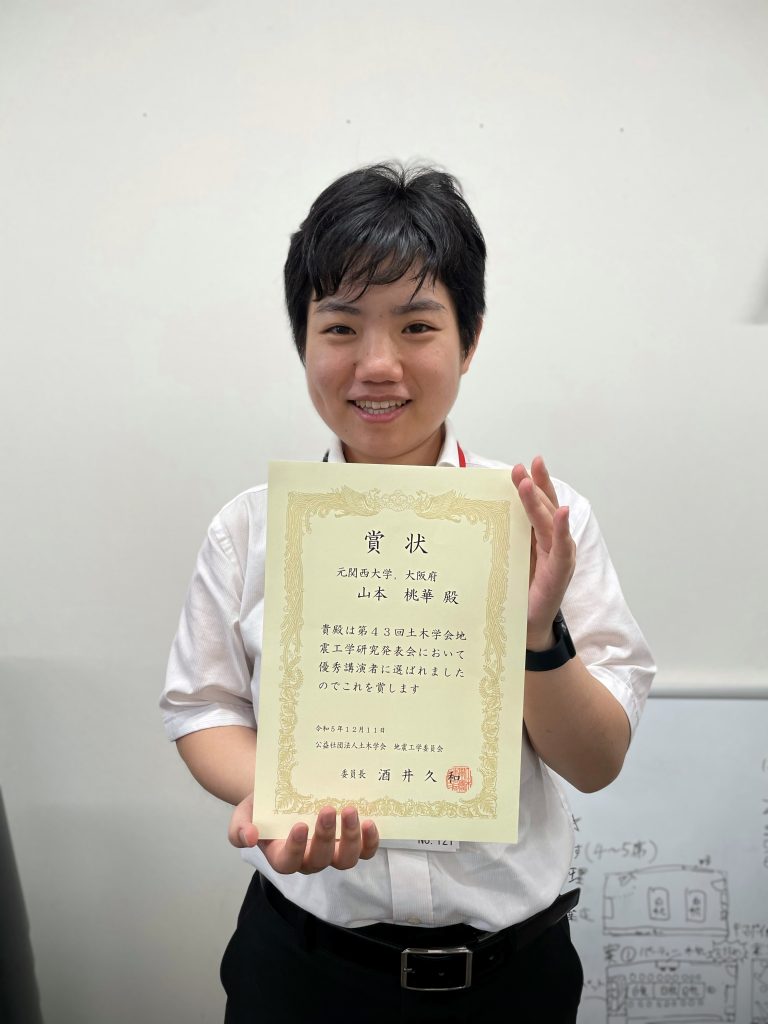 賞状
元関西大学、大阪府
山本 桃華 殿
貴殿は第43回土木学会地
震工学研究発表会において
優秀講演者に選ばれました
のでこれを賞します
令和5年12月11日
公益社団法人土木学会 地震工学委員会
委員長 酒井久和
No. 121
す(4〜5席)
理
案①